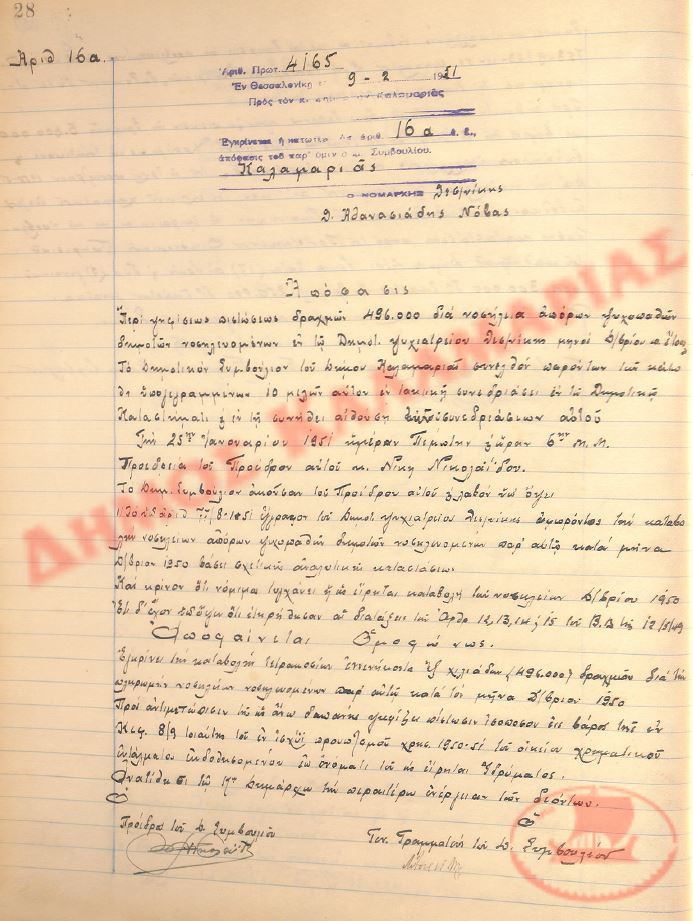 28
Ἀριθ 16α.
Ἀριθ. Πρωτ. 4165
Ἐν Θεσσαλονίκῃ 9-2 1951
Πρὸς τὸν Καλαμαριᾶς
Ἐγκρίνεται ἡ κατωτέρω ἀριθ. 16α
ἀπόφασις τοῦ παρ' ὑμῖν Συμβουλίου.
Καλαμαριᾶς
Ο ΝΟΜΑΡΧΗΣ Θεσ/νίκης
Ἀθανασιάδης Νόβας
Ἀπόφασις
Περὶ ψηφίσεως πιστώσεως δραχμῶν 496.000 διὰ νοσήλεια ἀπόρων ψυχοπαθῶν
δημοτῶν νοσηλευομένων ἐν τῷ Δημοτ. ψυχιατρείου Θεσ/νίκης μηνὸς Δ/βρίου
Τὸ Δημοτικὸν Συμβούλιον τοῦ Δήμου Καλαμαριᾶς συνελθὸν παρόντων τῶν κάτω
θι ὑπογεγραμμένων 10 μελῶν αὐτοῦ ἐν τακτικῇ συνεδριάσει ἐν τῷ Δημοτικῷ
Καταστήματι & ἐν τῇ συνήθει αἰθούσῃ συνεδριάσεων αὐτοῦ
Τὴν 25ην Ἰανουαρίου 1951 ἡμέραν Πέμπτην & ὥραν 6ην μ.μ.
Προεδρεία τοῦ Προέδρου αὐτοῦ κ. Νίκη Νικολαΐδου.
Τὸ Δημ. Συμβούλιον ἀκοῦσαν τοῦ Προέδρου αὐτοῦ & λαβὸν ὑπ' ὄψει
ἀριθ 77/8-1-51 ἔγγραφον τοῦ Δημοτ ψυχιατρείου Θεσ/νίκης ἀφορῶντος τὴν καταβο
λὴν νοσηλείων ἀπόρων ψυχοπαθῶν δημοτῶν νοσηλευομένων παρ' αὐτῷ κατὰ μῆνα
Δ/βριον 1950 βάσει σχετικῆς ἀναλυτικῆς καταστάσεως.
Καὶ κρῖνον ὅτι νόμιμα τυγχάνει ἡ ὡς εἴρηται καταβολὴ τῶν νοσηλείων Δ/βρίου 1950
Ἔτι δ' ἔχον ὑπ' ὄψιν ὅτι ἐτηρήθησαν αἱ διατάξεις τῶν Ἀρθρ 12, 13, 14 & 15 τοῦ Β.Δ τῆς 12/5/49
Ἀποφαίνεται Ὁμοφώνως.
Ἐγκρίνει τὴν καταβολὴν τετρακοσίων ἐννενήκοντα ἓξ χιλιάδων (496.000) δραχμῶν διὰ τὴν
πληρωμὴν νοσηλείων νοσηλευομένων παρ' αὐτῷ κατὰ τὸν μῆνα Δ/βριον 1950
Πρὸς ἀντιμετώπισιν τῆς ὡς ἄνω δαπάνης ψηφίζει πίστωσιν ἰσόποσον εἰς βάρος τῆς ἐν
Κεφ. 8/9 τοιαύτης τοῦ ἐν ἰσχύϊ προϋπ/σμοῦ χρήσ. 1950-51 τοῦ οἰκείου χρηματικοῦ
ἐντάλματος ἐκδοθησομένου ἐπ' ὀνόματι τοῦ ὡς εἴρηται Ἱδρύματος.
Ἀνατίθησι τῷ κω Δημάρχῳ τὴν περαιτέρω ἐνέργειαν τῶν δεόντων.
Ὁ
Πρόεδρος τοῦ Δ. Συμβουλίου
Ὁ
Γεν. Γραμματεὺς τοῦ Δ. Συμβουλίου
ΔΗΜΟΣ ΚΑΛΑΜΑΡΙΑΣ